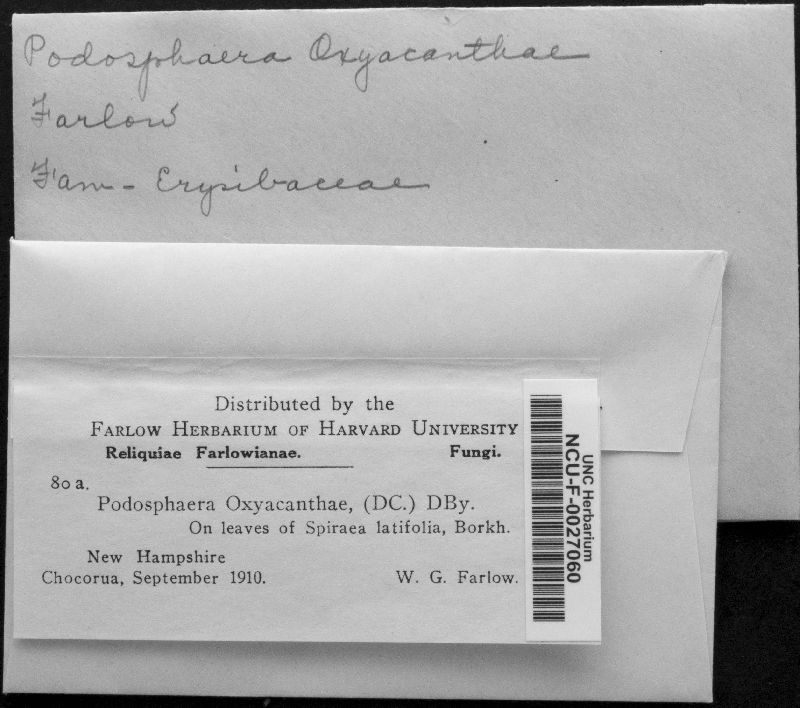 Podosphaera Oxyacanthae
Farlow
Fam - Erysibaceae
Distributed by the
FARLOW HERBARIUM OF HARVARD UNIVERSITY
Reliquiae Farlowianae. Fungi.
80 a.
Podosphaera Oxyacanthae, (DC.) DBy.
On leaves of Spiraea latifolia, Borkh.
New Hampshire
Chocorua, September 1910. W. G. Farlow.
UNC Herbarium
NCU-F-0027060